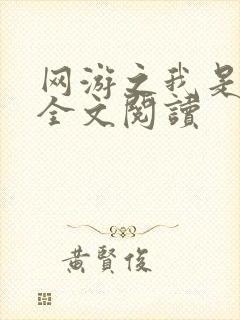 网游之我是
全文閱讀
黃賢俊